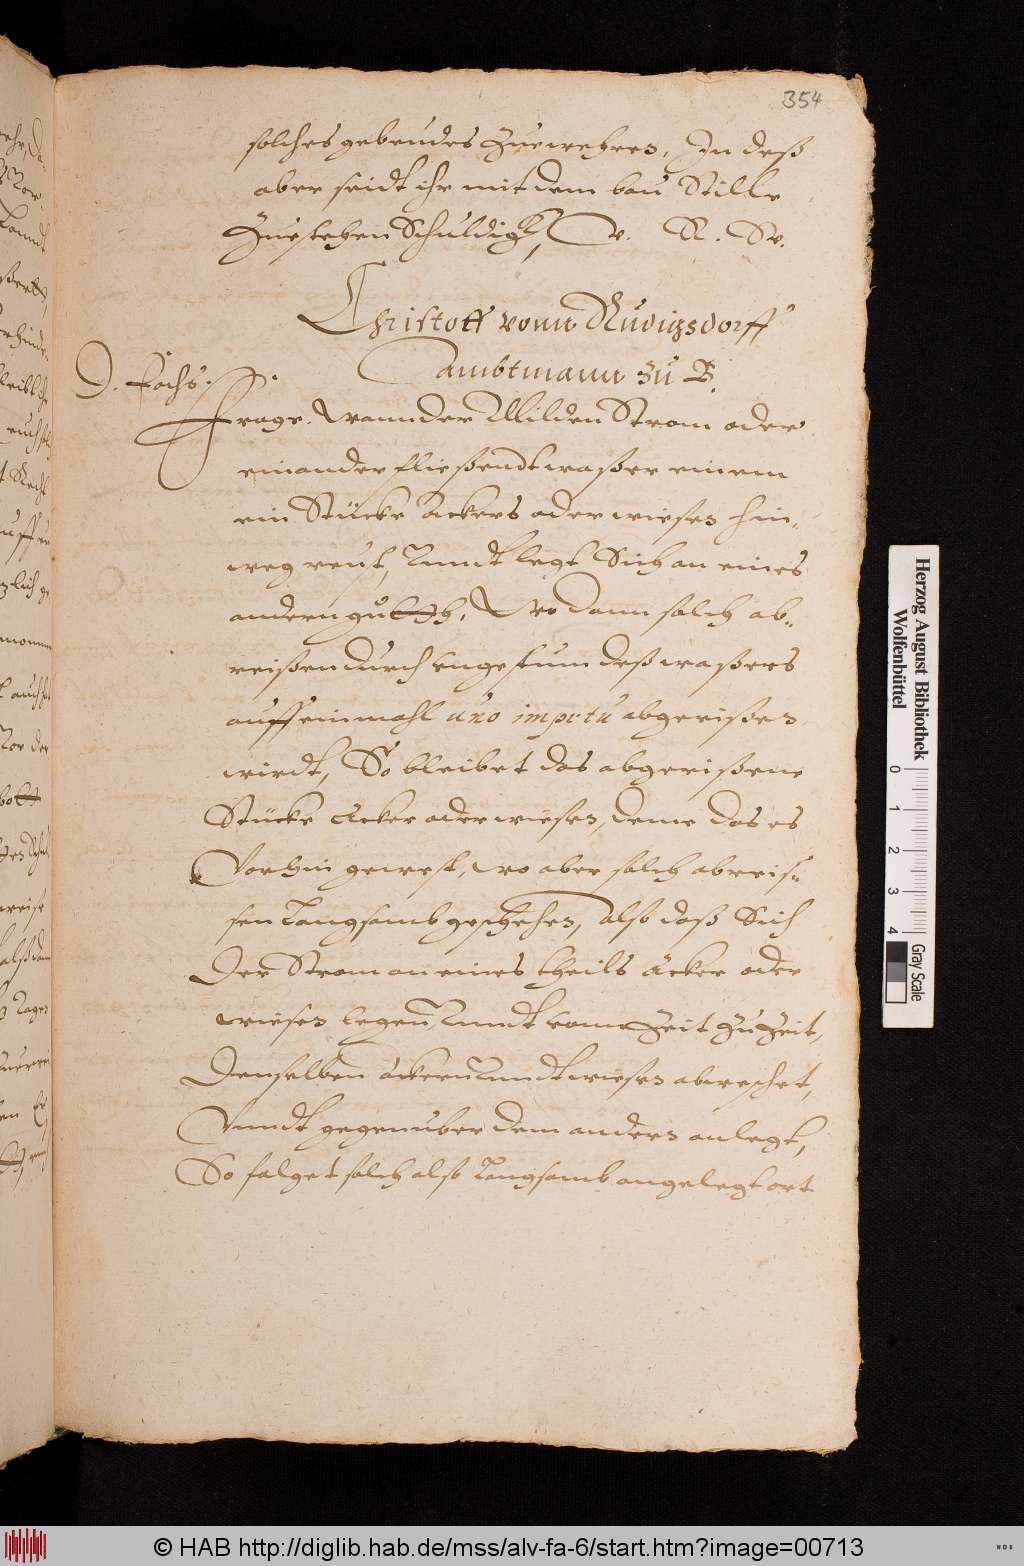 354
solches gebeudes Zuewehren, In deß
aber seidt ihr mit dem bau Stille
Zuestehen Schuldig, V. R. W.
Christoff vonn Rudigsdorff
Ambtmann zu B.
D. Fachs.
Frage. Wann der Wilden Strom oder
ein ander fließendt waßer einem
ein Stücke Ackers oder wiesen hin-
weg reust, Unndt legt Sich an eines
andern gutth, Wo dann solch ab-
reißen durch ungestum deß waßers
auff einmahl uno impetu abgerißen
wirdt, So bleibet das abgerißene
Stücke Acker oder wiesen, deme das es
Vorhin gewest, wo aber solch abreis-
sen Langsamb geschehen, also daß Sich
Der Strom an eines theils äcker oder
wiesen legen Unndt vonn Zeit Zu Zeit,
Denselben äckern Unndt wiesen abweschet,
Vnndt gegenuber dem andern anlegt,
So folget solch also Langsamb angelegt ort
Herzog August Bibliothek
Wolfenbüttel
0 1 2 3 4
Gray Scale
© HAB http://diglib.hab.de/mss/alv-fa-6/start.htm?image=00713